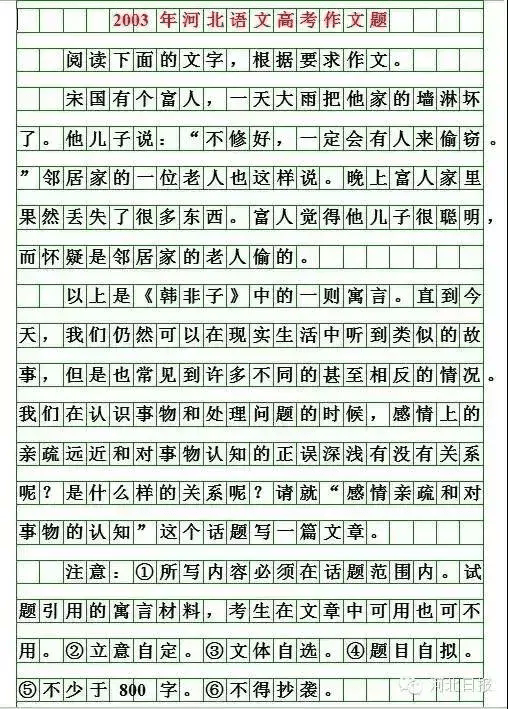 2003 年河北语文高考作文题
阅读下面的文字，根据要求作文。
宋国有个富人，一天大雨把他家的墙淋坏
了。他儿子说：“不修好，一定会有人来偷窃。
”邻居家的一位老人也这样说。晚上富人家里
果然丢失了很多东西。富人觉得他儿子很聪明，
而怀疑是邻居家的老人偷的。
以上是《韩非子》中的一则寓言。直到今
天，我们仍然可以在现实生活中听到类似的故
事，但是也常见到许多不同的甚至相反的情况。
我们在认识事物和处理问题的时候，感情上的
亲疏远近和对事物认知的正误深浅有没有关系
呢？是什么样的关系呢？请就“感情亲疏和对
事物的认知”这个话题写一篇文章。
注意：①所写内容必须在话题范围内。试
题引用的寓言材料，考生在文章中可用也可不
用。②立意自定。③文体自选。④题目自拟。
⑤不少于 800 字。⑥不得抄袭。
河北日报